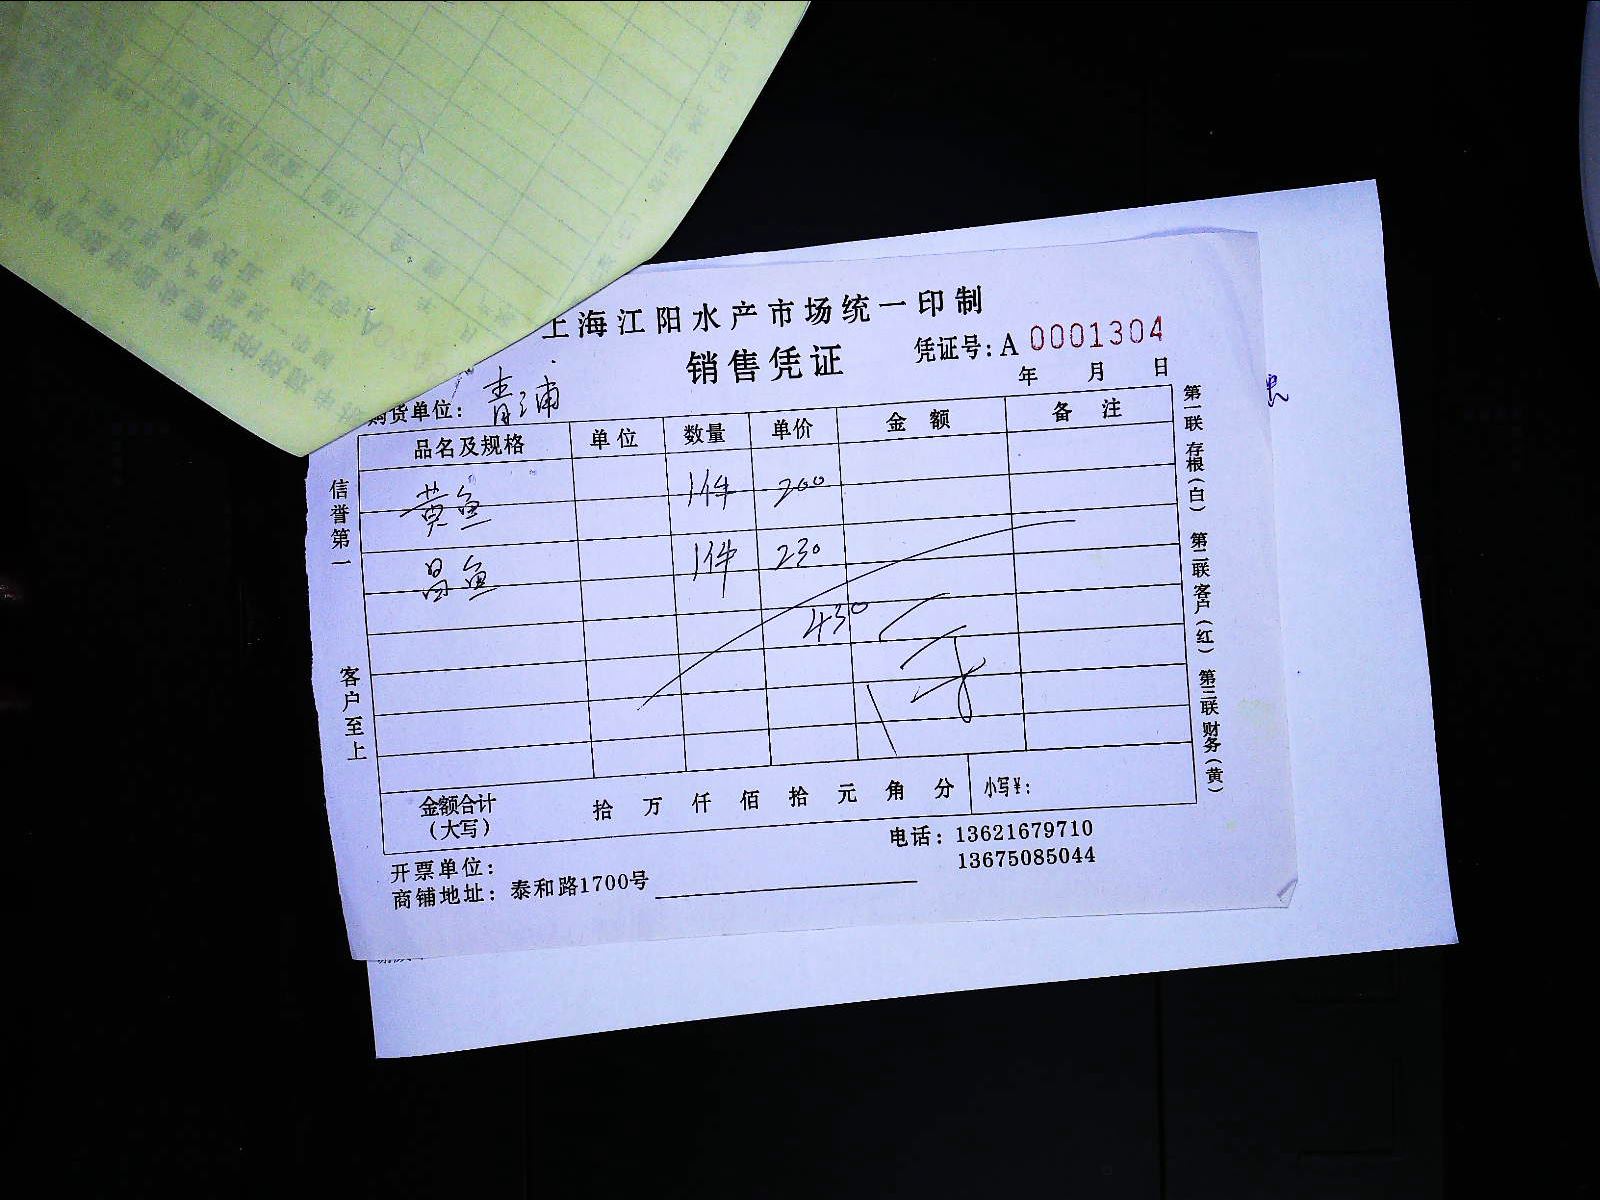 上海江阳水产市场统一印制
销售凭证
凭证号: A 0001304
年 月 日
购货单位: 青浦
品名及规格 单位 数量 单价 金额 备注
黄鱼 1件 200
昌鱼 1件 230
430
金额合计 (大写) 拾 万 仟 佰 拾 元 角 分 小写¥:
开票单位:
电话: 13621679710
13675085044
商铺地址: 泰和路1700号
信誉第一 客户至上
第一联 存根(白) 第二联 客户(红) 第三联 财务(黄)